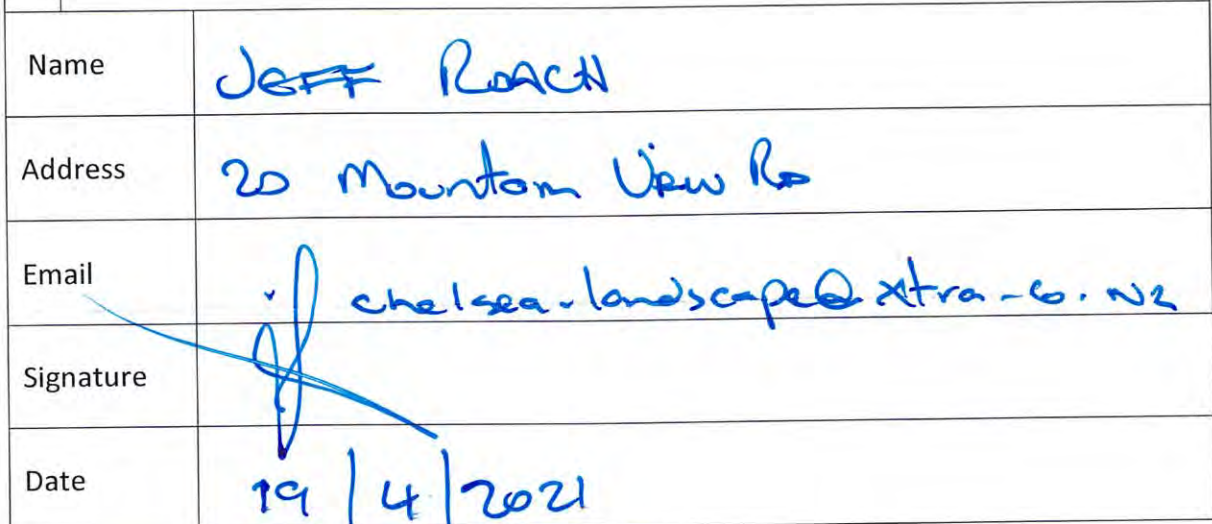 Name JEFF ROACH
Address 20 Mountain View RD
Email chelsea.landscape@xtra.co.nz
Signature
Date 19/4/2021